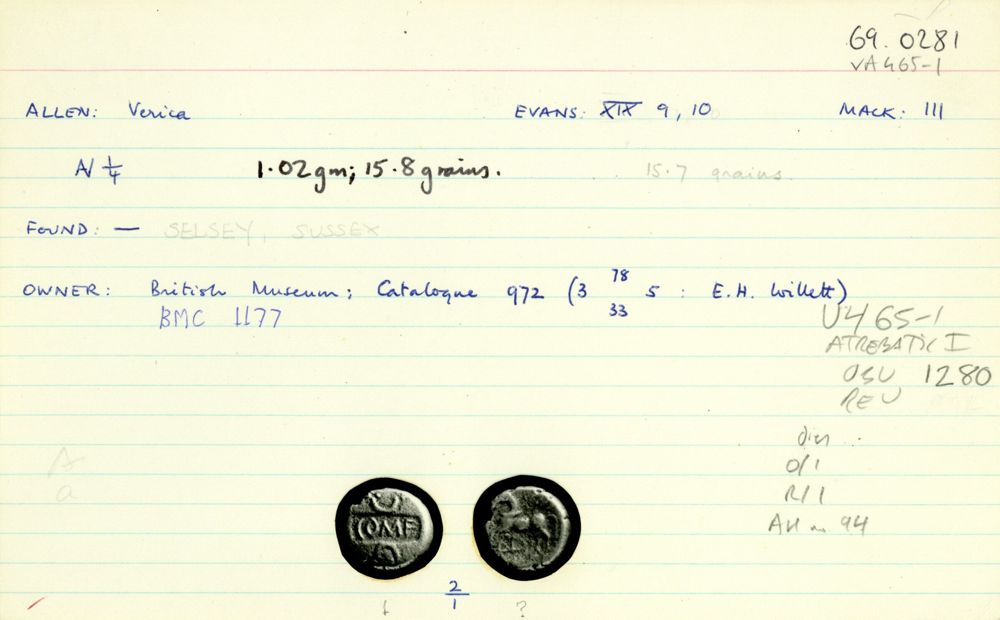 69. 0281
VA465-1
ALLEN: Verica EVANS: XIX 9, 10 MACK: 111
N 1/4 1.02gm; 15.8grains. 15.7 grains.
FOUND: — SELSEY, SUSSEX
OWNER: British Museum; Catalogue 972 (3 78 5 : E.H. Willett)
33
BMC 1177
V465-1
ATREBATIC I
OBV 1280
REV
dies
O/1
R/1
94
A
a
COMF
2/1
?